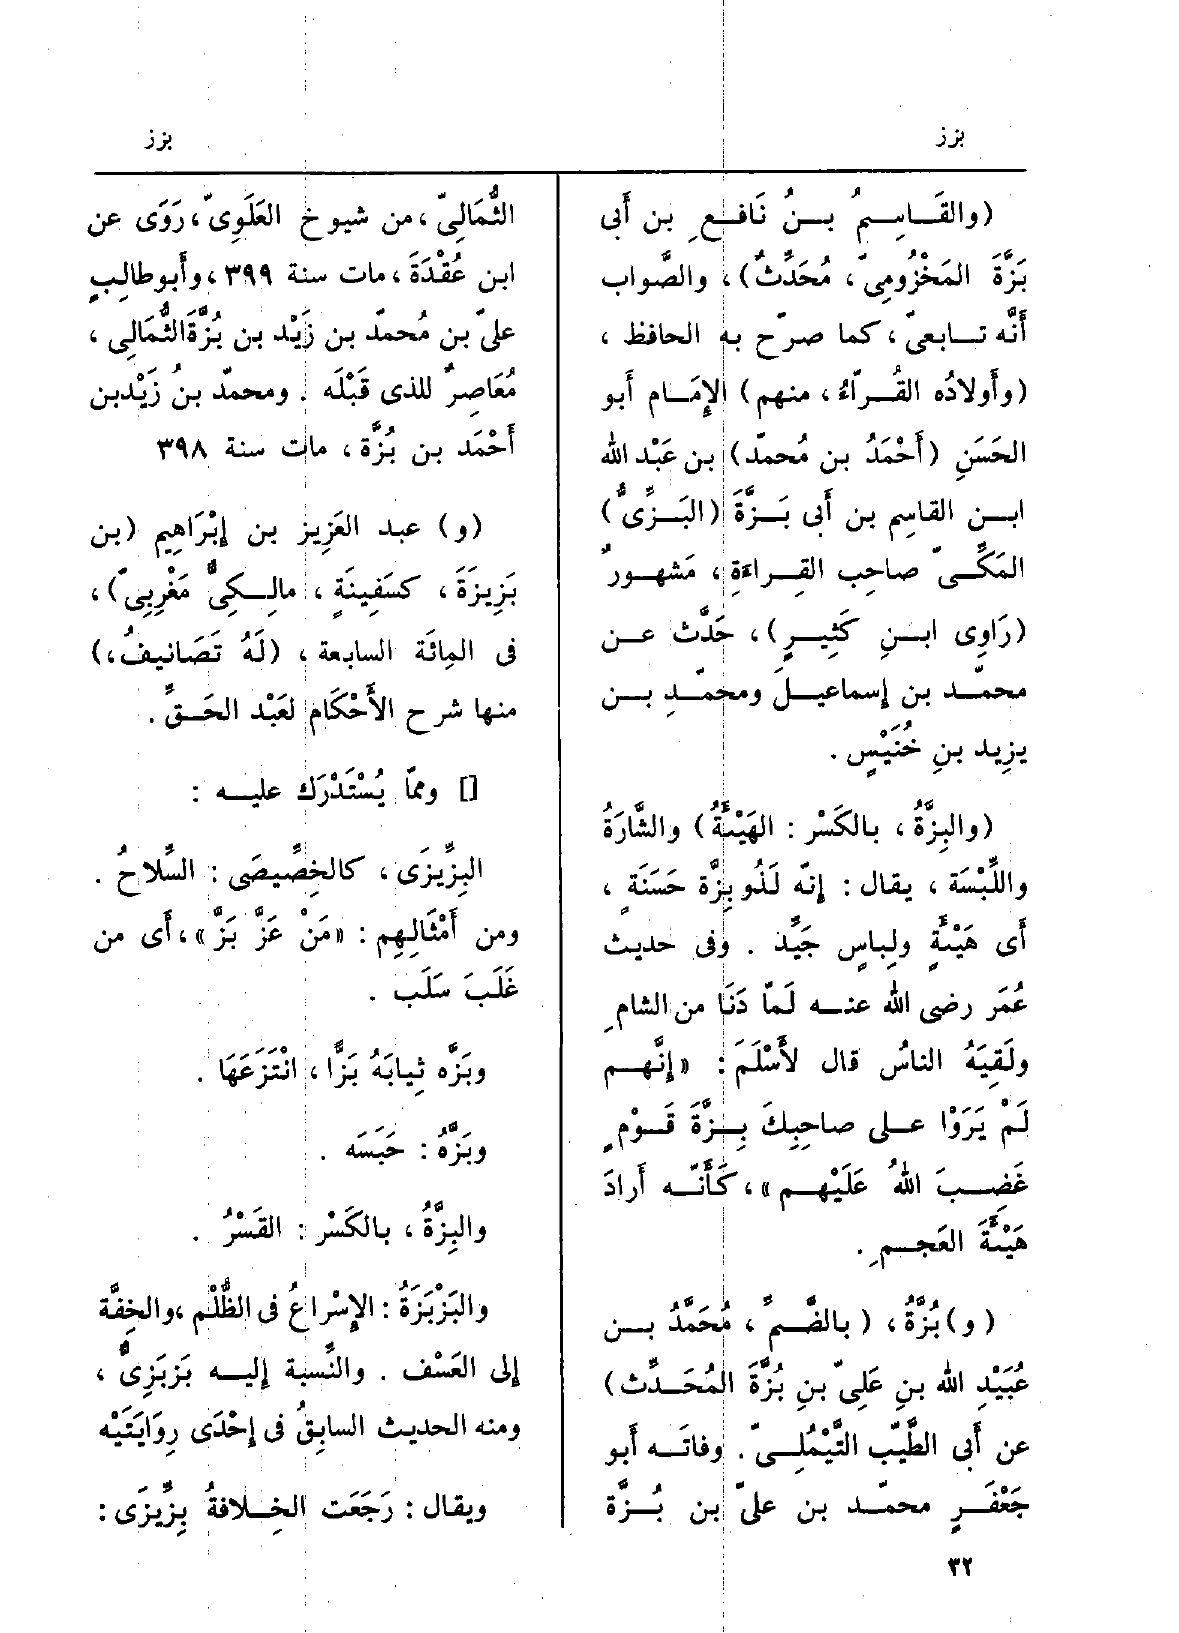 بزز
بزز
(والقَـاسِمُ بـنُ نَافـعِ بن أبى
بَزَّةَ المَخْزُومىّ ، مُحَدِّثٌ) ، والصَّواب
أَنَّه تـابعىّ ، كما صرّح به الحافظ ،
(وأَولادُه القُـرّاءُ ، منهم) الإِمَـام أَبو
الحَسَنِ (أَحْمَدُ بن مُحمدّ) بن عَبْد الله
ابـن القاسِم بن أَبى بَـزَّةَ (البَـزِّىُّ)
المَكِّـىّ صاحِب القِـراءَةِ ، مَشهـورٌ
(رَاوِى ابـنِ كَثِيـرٍ) ، حَدَّث عـن
محمّـد بن إِسماعيـلَ ومحمّـدِ بـن
يزِيد بنِ خُنَيْسٍ .
(والبِزَّةُ ، بالكَسْر : الهَيْئَةُ) والشَّارَةُ
واللِّبْسَة ، يقال : إِنّه لَذُو بِزَّة حَسَنَةٍ ،
أَى هَيْئَةٍ ولِباسٍ جَيِّد . وفى حديث
عُمَر رضى الله عنـه لَمّا دَنَا من الشامِ
ولَقِيَهُ الناسُ قال لأَسْلَمَ : «إِنَّهـم
لَمْ يَرَوْا علـى صاحِبِكَ بِـزَّةَ قَـوْمٍ
غَضِـبَ اللهُ عَلَيْهـم» ، كَأَنّـه أَرادَ
هَيْئَةَ العَجـمِ .
(و) بُزَّةُ ، (بالضَّـمِّ ، مُحَمَّدُ بـن
عُبَيْدِ الله بنِ عَلِىّ بنِ بُزَّةَ المُحَـدِّث)
عن أَبى الطَّيِّب التَّيْمُلـىّ . وفاتَـه أَبو
جَعْفَـرٍ محمّـد بن علىّ بن بُـزَّة
الثُّمَالِىّ ، من شيوخ العَلَوِىّ ، رَوَى عن
ابن عُقْدَةَ ، مات سنة ٣٩٩ ، وأَبوطالِبٍ
علىّ بن مُحمدّ بن زَيْد بن بُزَّةَ الثُّمَالِى ،
مُعَاصِرٌ للذى قَبْلَه . ومحمدّ بنُ زَيْدبن
أَحْمَد بن بُزَّة ، مات سنة ٣٩٨
(و) عبد العَزِيز بن إِبْرَاهِيم (بن
بَزِيزَةَ ، كسَفِينَةٍ ، مالِـكِىٌّ مَغْرِبِىّ) ،
فى المِائَة السابعة ، (لَهُ تَصَانيفُ ،)
منها شرح الأَحْكَام لعَبْد الحَـقِّ .
[] وممّا يُسْتَدْرَك عليـه :
البِزِّيزَى ، كالخِصِّيصَى : السِّلاحُ .
ومن أَمْثَالِهِم : «مَنْ عَزَّ بَزَّ» ، أَى من
غَلَبَ سَلَب .
وبَزَّه ثِيابَهُ بَزًّا ، انْتَزَعَهَا .
وبَزَّهُ : حَبَسَه .
والبِزَّةُ ، بالكَسْر : القَسْرُ .
والبَزْبَزَةُ : الإِسْراعُ فى الظُّلْم ، والخِفَّة
إلى العَسْف . والنِّسبة إِليـه بَزْبَزِىٌّ ،
ومنه الحديث السابِقُ فى إِحْدَى رِوَايَتَيْه
ويقال : رَجَعَت الخِـلافةُ بِزِّيزَى :
٣٢